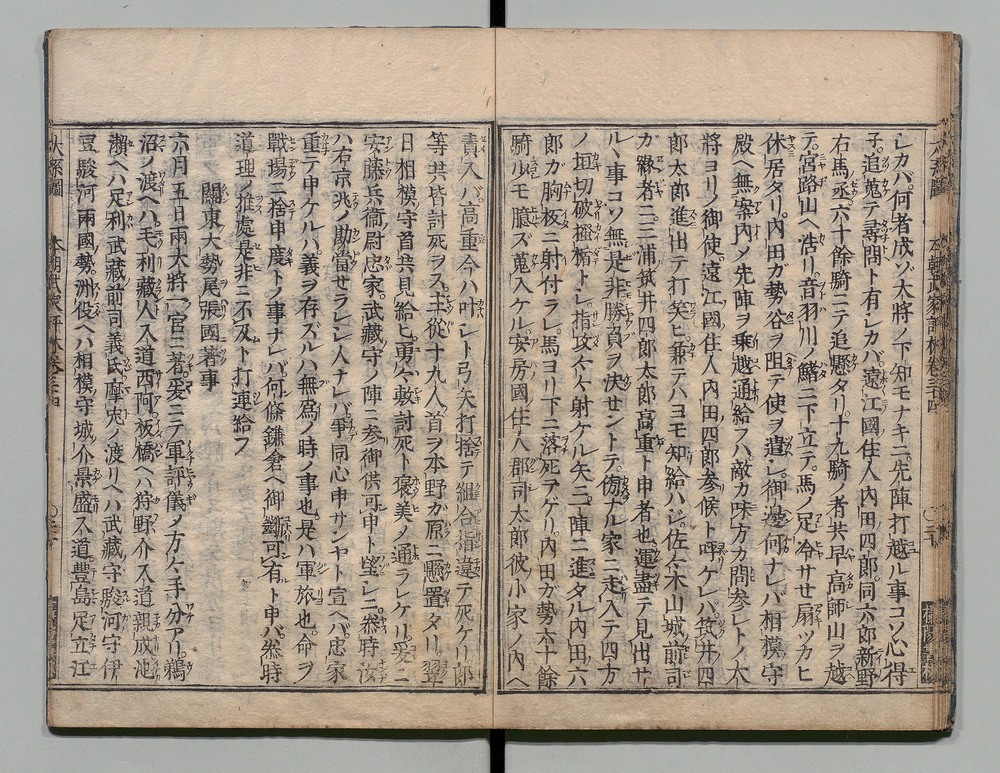 レカバ何者成ゾ大將ノ下知モナキニ先陣打越ル事コソ心得
子。追蒐テ尋問ト有レカバ。遠江國住人內田四郎。同六郎新野
右馬丞六十餘騎ニテ追懸タリ。十九騎ノ者共早高師山ヲ越
テ。宮路山ヘ浩リ。音羽川ノ鰭ニ下立テ。馬ノ足冷サセ扇ツカヒ
休居タリ。內田ガ勢谷ヲ阻テ使ヲ遣シ御邊何ナレバ相模守
殿ヘ無案內メ先陣ヲ乗越通給フハ敵カ味方カ問參レトノ大
將ヨリノ御使。遠江國住人內田四郎參候ト呼ケレバ。筑井四
郎太郎進出テ打笑ヒ。兼テハヨモ知給ハジ。佐々木山城前司
ガ緣者ニ三浦筑井四郎太郎高重ト申者也。運盡テ見出サ
ルヽ事コソ無是非。勝負ヲ決セントテ。傍ナル家ニ走入テ四方
ノ垣切破楯トレ。指攻々々射ケル矢ニ一陣ニ進タル內田六
郎ガ胸板ニ射付ラレ。馬ヨリ下ニ落死ケリ。內田ガ勢六十餘
騎ルモ臆ズ蒐入ケル。安房國住人郡司太郎彼小家ノ內ヘ
責入バ。高重今ハ叶レト弓矢打捨テ組合指違テ死ケリ。郎
等共皆討死ヲス。主從十九人首ヲ本野ガ原ニ懸置タリ。翌
日相模守首共見給ヒ。勇々敷討死ト褒美メ通ラレケリ。爰ニ
安藤兵衛尉忠家。武藏守ノ陣ニ參御供可申ト望レニ。然時汝
ハ右京兆ノ勘當セラレレ人ナレバ。爭同心申サンヤト宣ヘバ。忠家
重テ申ケルハ義ヲ存ズルハ無爲ノ時ノ事也。是ハ軍旅也。命ヲ
戰場ニ捨申度トノ事ナレバ。何條鎌倉ヘ御可有ト申バ。然時
道理ノ推處是非ニ不及ト打連給フ
關東大勢尾張國著事
六月五日兩大將一宮ニ著。爰ニテ軍評儀メ方々手分アリ。鵜
沼ノ渡ヘハ毛利藏人入道西阿。板橋ヘハ狩野介入道親成。池
瀨ヘハ足利武藏前司義氏。摩穴ノ渡リヘハ武藏守。駿河守。伊
豆駿河兩國勢。洲俣ヘハ相模守。城介景盛入道。豐島。足立。江